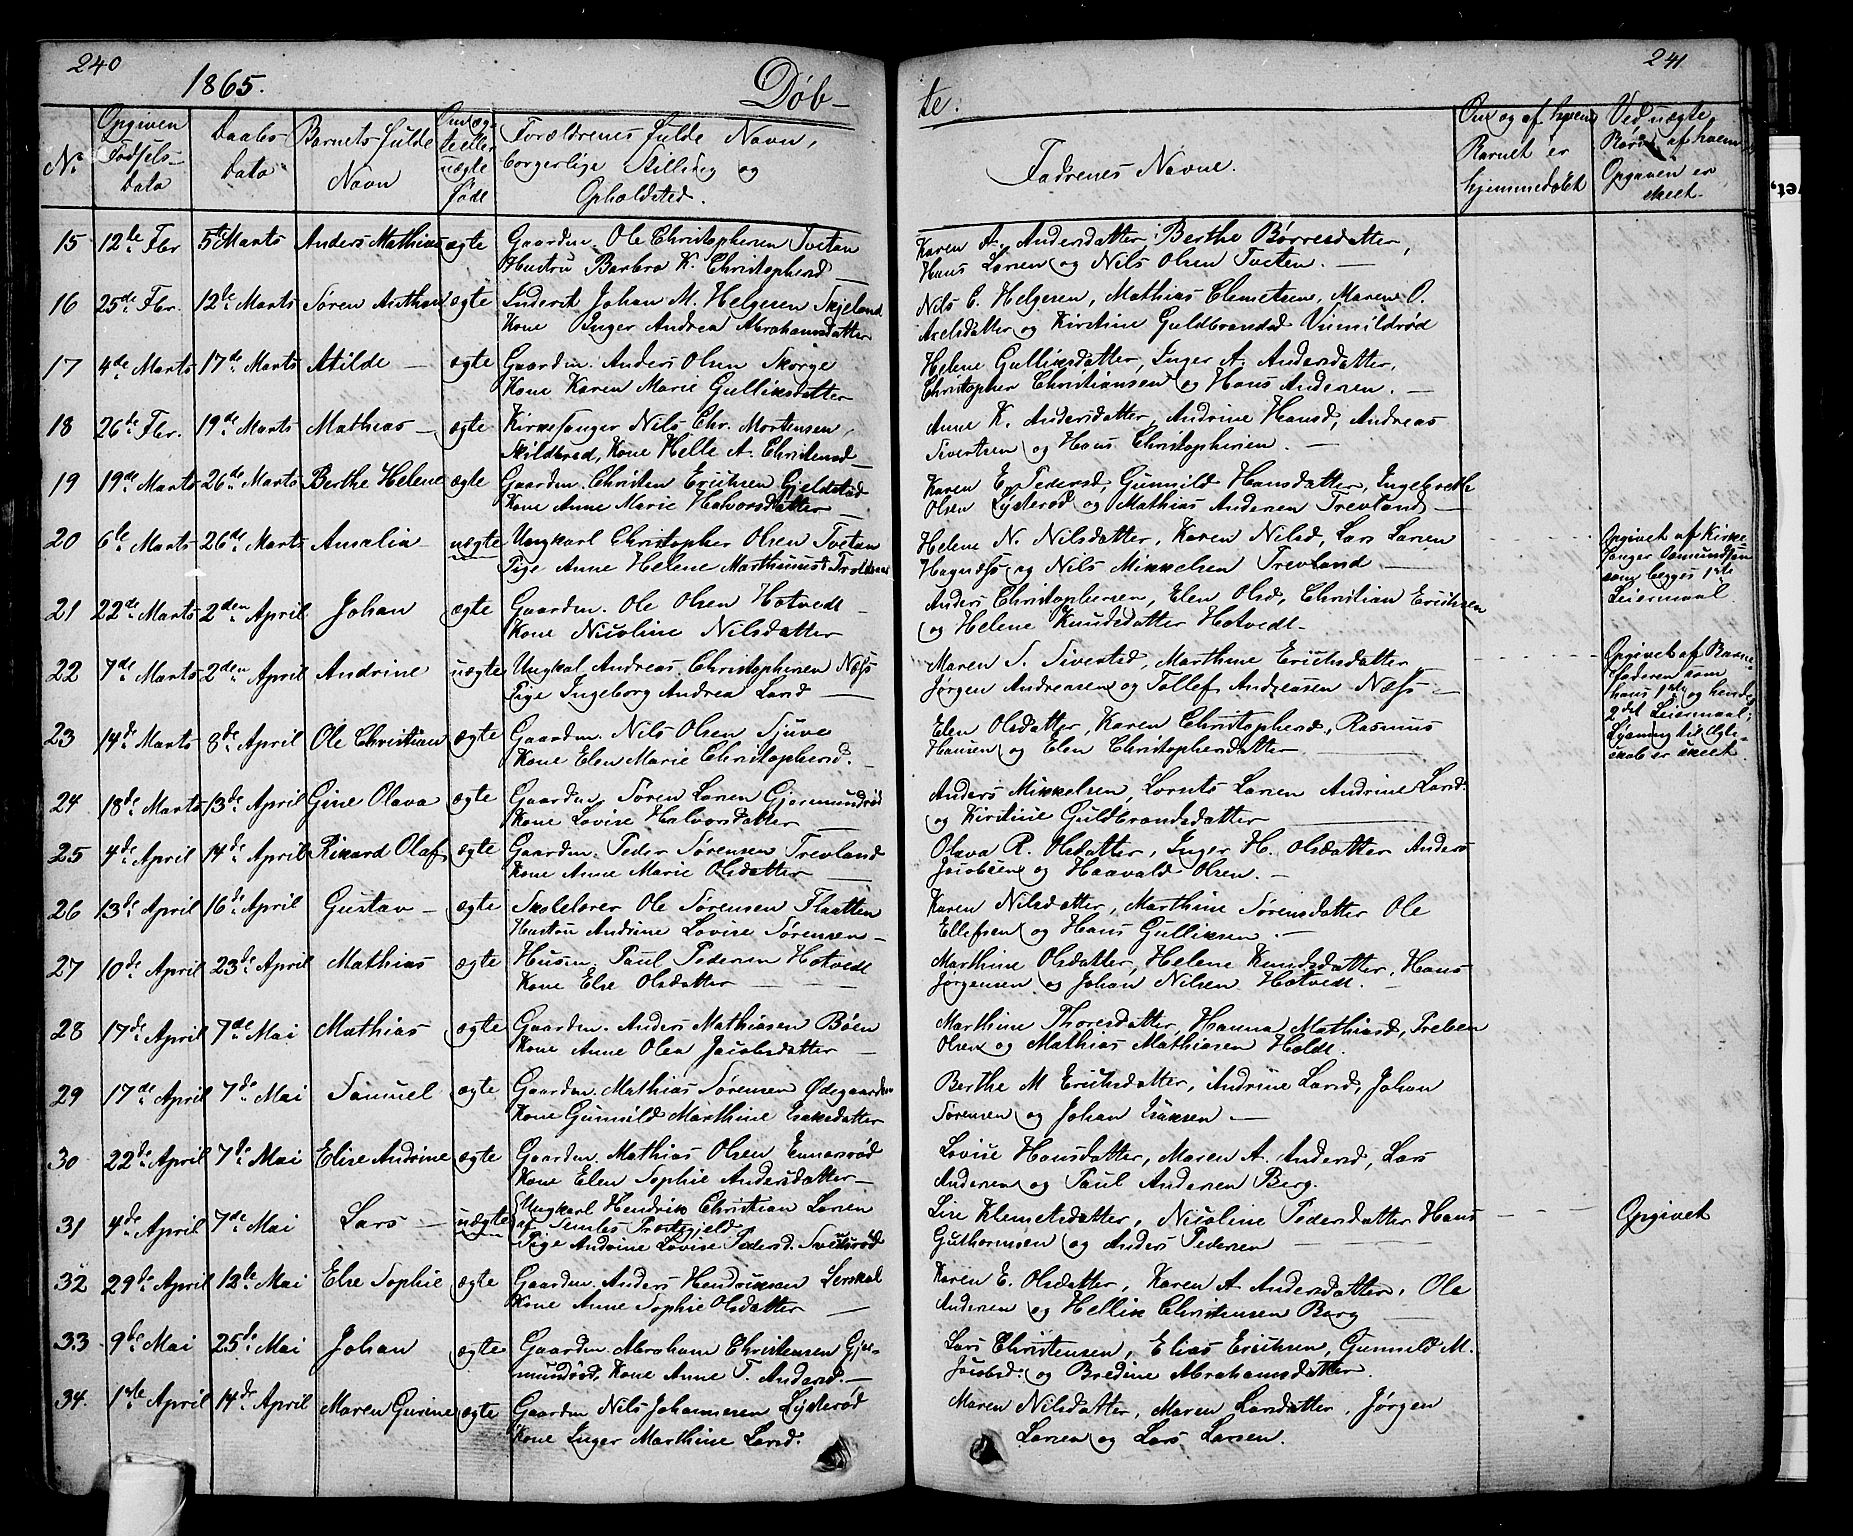 240
1865.
Døb-
No
Opgiven Fødsels- Dato
Daabs Dato
Barnets fulde Navn
Om ægte eller uægte født
Forældrenes fulde Navn, borgerlige Stilling og Opholdsted.
15 12te Fbr 5te Marts Anders Mathias ægte Gaardm. Ole Christophersen Tvetan
Hustru Barbra K. Christophersd —
16 25de Fbr. 12te Marts Søren Anthon ægte Inderst Johan M. Helgesen Skjeland
Kone Inger Andrea Abrahamsdatter
17 4de Marts 17de Marts Atilde — ægte Gaardm. Anders Olsen Skorge
Kone Karen Marie Gulliksdatter
18 26de Fbr. 19de Marts Mathias — ægte Kirkesanger Nils Chr. Mortensen
Skildbred, Kone Helle A. Christensd —
19 19de Marts 26de Marts Berthe Helene ægte Gaardm. Christen Erichsen Gjelstad
Kone Anne Marie Halvorsdatter —
20 6te Marts 26de Marts Amalia uægte Ungkarl Christopher Olsen Tvetan
Pige Anne Helene Marthinusd
21 22de Marts 2den April Johan ægte Gaardm. Ole Olsen Hotvedt —
Kone Nicoline Nilsdatter
22 7de Marts 2den April Andrine uægte Ungkal. Andreas Christophersen Næss
Pige Ingeborg Andrea Larsd —
23 14de Marts 8de April Ole Christian ægte Gaardm. Nils Olsen Sjuve
Kone Elen Marie Christophersd. —
24 18de Marts 13de April Gine Olava ægte Gaardm. Søren Larsen Gjermundrød
Kone Lovise Halvorsdatter —
25 4de April 14de April Rikard Olaf ægte Gaardm. Peder Sørensen Trevland
Kone Anne Marie Olsdatter —
26 13de April 16de April Gustav — ægte Skolelærer Ole Sørensen Flaatten
Hustru Andrine Lovise Sørensen —
27 10de April 23de April Mathias ægte Husm. Paul Pedersen Hotvedt
Kone Else Olsdatter —
28 17de April 7de Mai Mathias ægte Gaardm. Anders Mathiasen Bøen
Kone Anne Olea Jacobsdatter —
29 17de April 7de Mai Samuel ægte Gaardm. Mathias Sørensen Ødegaarden
Kone Gunnild Marthine Isaksdatter
30 22de April 7de Mai Elise Andrine ægte Gaardm. Mathias Olsen Ennersrød
Kone Elen Sophie Andersdatter —
31 4de April 7de Mai Lars — uægte Ungkarl Hendrik Christian Larsen
af Semles Præstegjeld
Pige Andrine Lovise Pedersd.
32 29de April 12te Mai Else Sophie ægte Gaardm. Anders Hendriksen Lerskal
Kone Anne Sophie Olsdatter —
33 9de Mai 25de Mai Johan ægte Gaardm. Abraham Christensen Gjer-
mundrød, Kone Anne T. Andersd. —
34. 1ste April 14de April Maren Gurine ægte Gaardm Nils Johannesen Lysterød
Kone Inger Marthine Larsd.
241
te.
Fadrenes Navne.
Om og af hvem Barnet er hjemmedøbt
Ved uægte Børn, af hvem Opgaven er skeet.
Karen A. Andersdatter, Berthe Børresdatter,
Hans Larsen og Nils Olsen Tveten. —
Nils C. Helgesen, Mathias Clemetsen, Maren O.
Axelsdatter og Kirstine Guldbrandsd Vimildrød
Helene Gulliksdatter, Inger A. Andersdatter,
Christopher Christiansen og Hans Andersen. —
Anne K. Andersdatter, Andrine Hansd, Andreas
Sivertsen og Hans Christophersen. —
Karen E. Pedersd, Gunnild Hansdatter, Ingebreth
Olsen Lysterød og Mathias Andersen Trevland —
Helene N. Nilsdatter, Karen Nilsd, Lars Larsen
Hagnæss og Nils Mikkelsen Trevland —
Opgivet af Kirke-
sanger Asmundsen
som begges 1ste
Leiermaal.
Anders Christophersen, Elen Olsd, Christian Erichsen
og Helene Knudsdatter Hotvedt —
Maren S. Sivertsd, Marthine Erichsdatter
Jørgen Andreasen og Tollef Andreasen Næss —
Opgivet af Barne
faderen som
hans 1ste og hendes
2det Leiermaal;
Lysning til Ægte-
skab er skeet
Elen Olsdatter, Karen Christophersd, Rasmus
Hansen og Elen Christophersdatter —
Anders Mikkelsen, Lornts Larsen Andrine Larsd.
og Kirstine Guldbrandsdatter —
Olava R. Olsdatter, Inger H. Olsdatter Anders
Jacobsen og Haavald Olsen. —
Karen Nilsdatter, Marthine Sørensdatter Ole
Ellefsen og Hans Gulliksen. —
Marthine Olsdatter, Helene Knudsdatter, Hans
Jørgensen og Johan Nilsen Hotvedt. —
Marthine Thoresdatter, Hanna Mathiasd, Preben
Olsen og Mathias Mathiasen Holdt.
Berthe M Erichsdatter, Andrine Larsd, Johan
Sørensen og Johan Isaksen. —
Lovise Hansdatter, Maren A. Andersd, Lars
Andersen og Paul Andersen Berg.
Lise Klemetsdatter, Nicoline Pedersdatter Hans
Guthormsen og Anders Pedersen —
Opgivet
Karen E. Olsdatter, Karen A. Andersdatter, Ole
Andersen og Hellik Christensen Berg —
Lars Christensen, Elias Erichsen, Gunnild M.
Jacobsd. og Bredine Abrahamsdatter.
Maren Nilsdatter, Maren Larsdatter, Jørgen
Larsen og Lars Larsen.